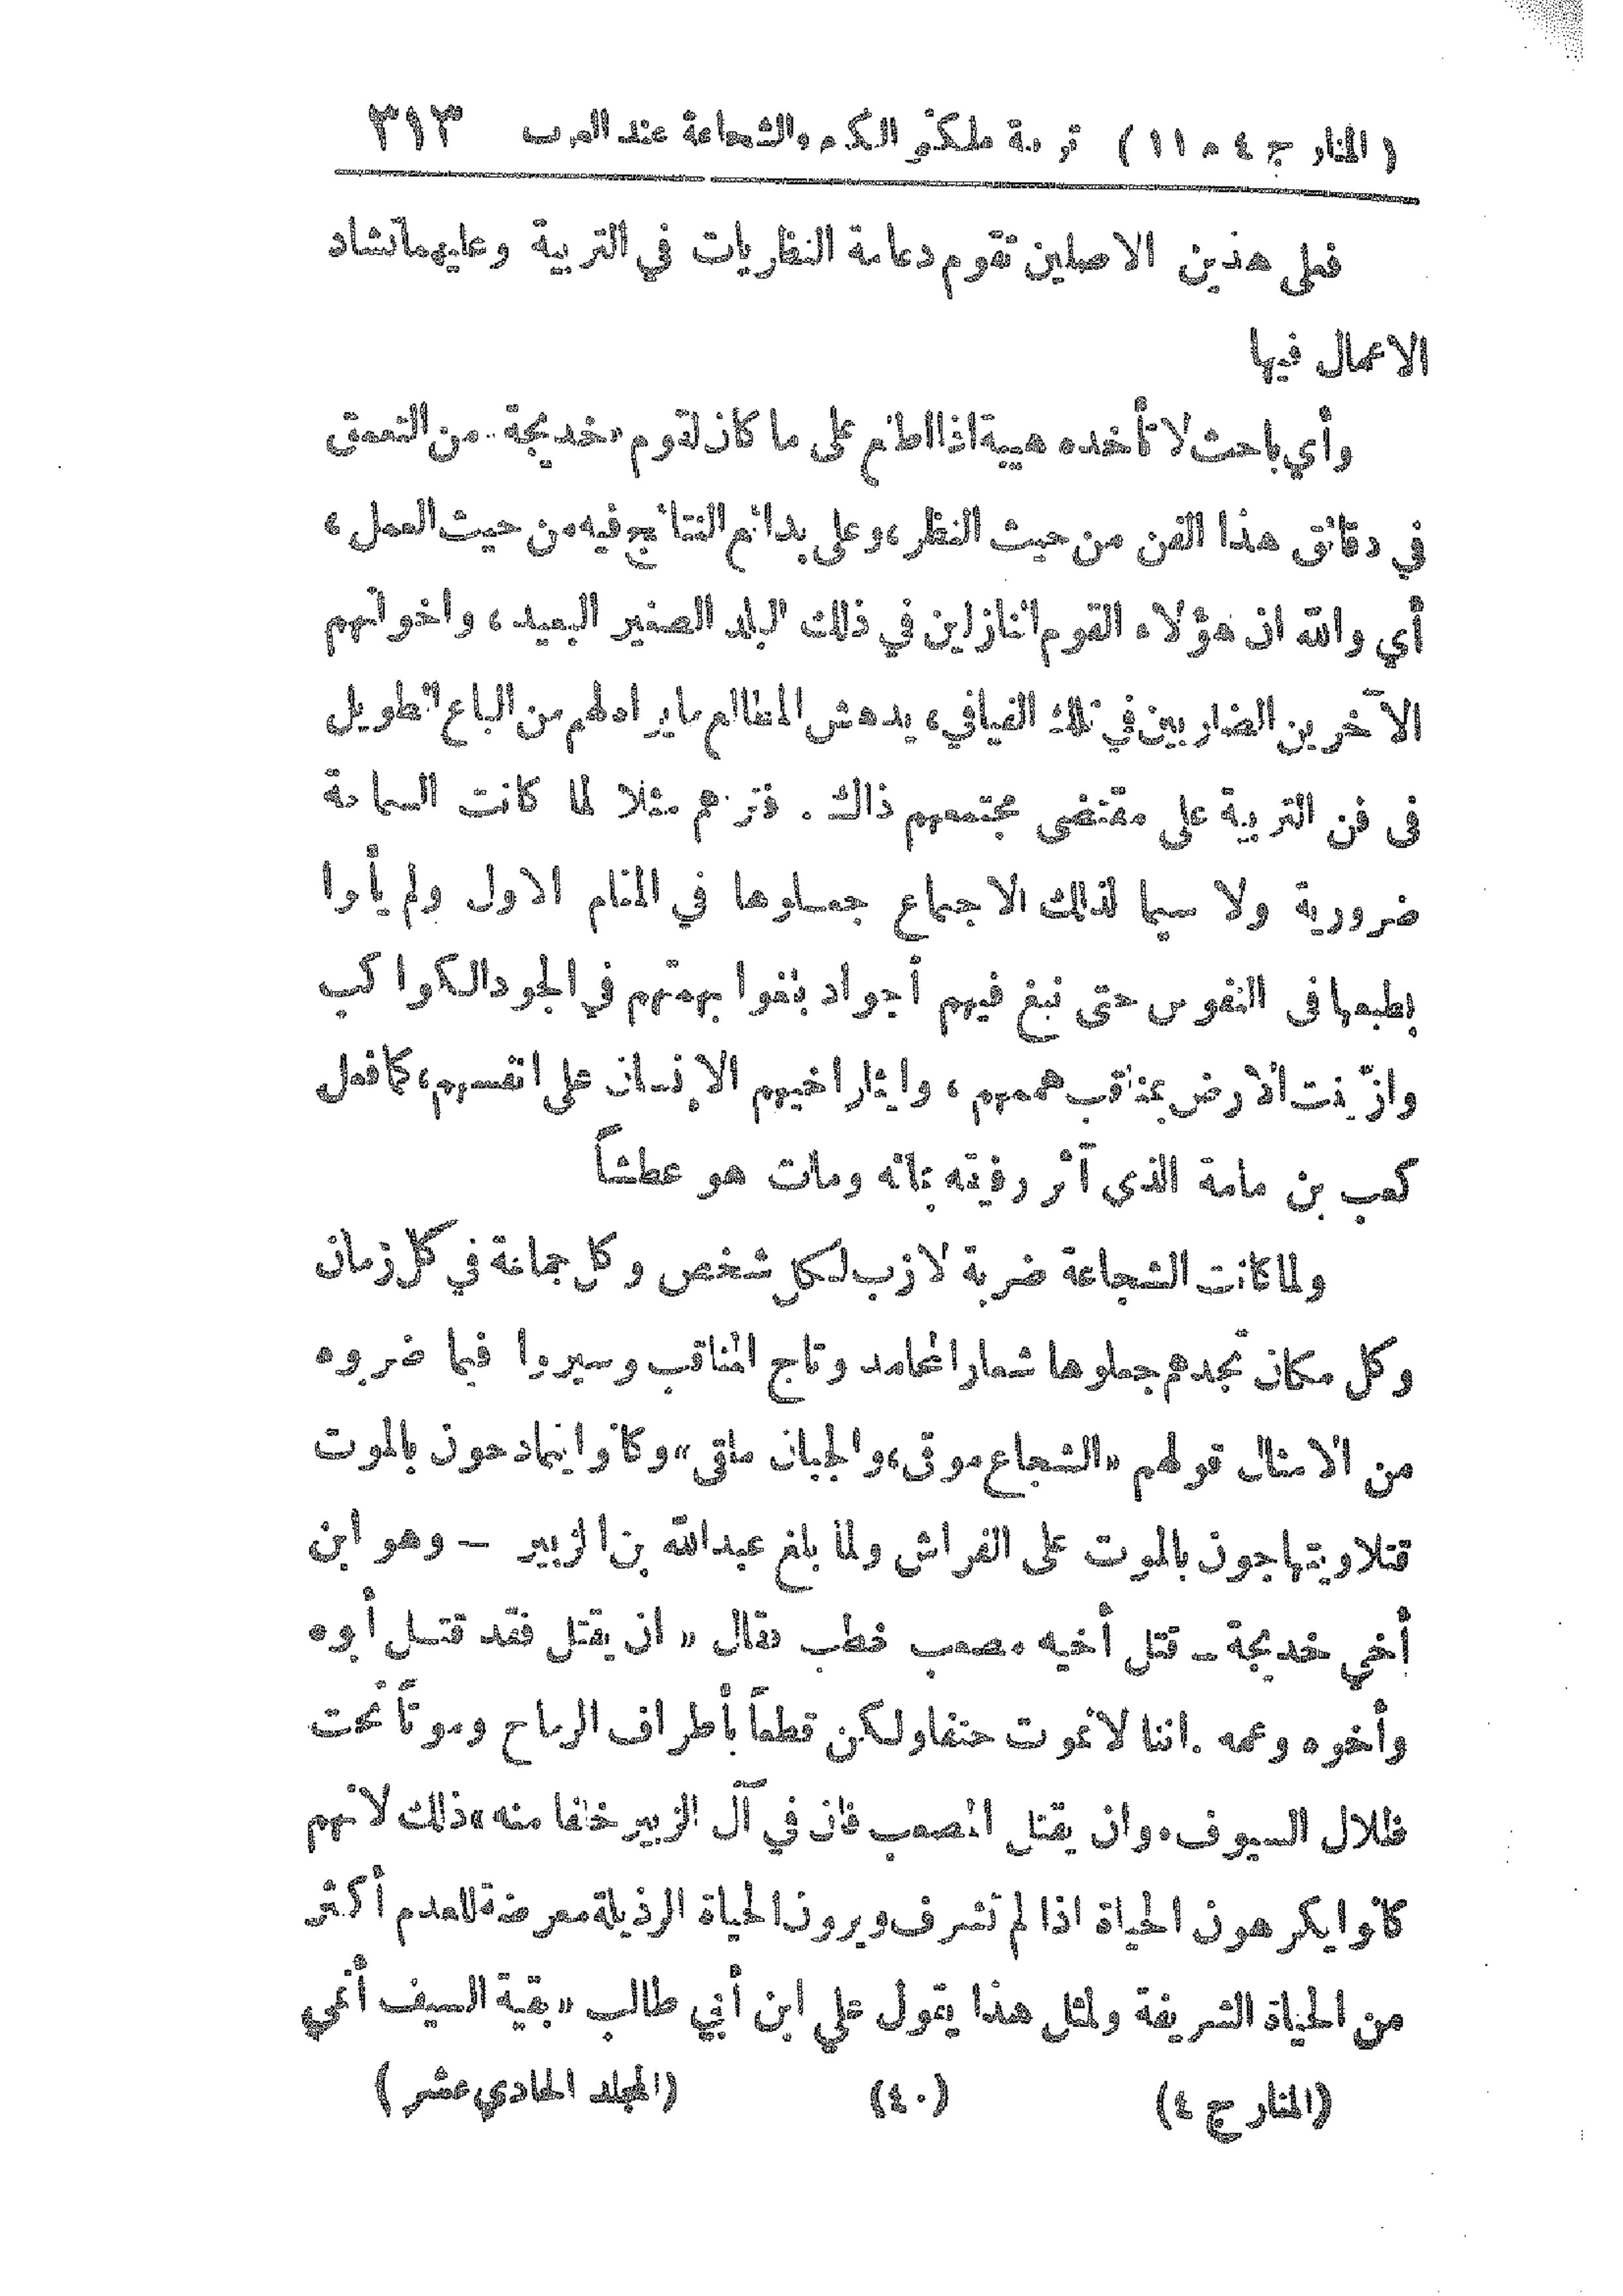 (المنار ج ٤ م ١١) تربية ملكتي الكرم والشجاعة عند العرب ٣١٣
فعلى هذين الاصلين تقوم دعامة النظريات في التربية وعليهما تشاد
الاعمال فيها
وأي باحث لا تأخذه هيبة اذا اطلع على ما كان لقوم «خديجة» من التعمق
في دقائق هذا الفن من حيث النظر، وعلى بدائع النتائج فيه من حيث العمل،
أي والله ان هؤلاء القوم النازلين في ذلك البلد الصغير البعيد، واخوانهم
الآخرين الضاربين في تلك الفيافي، يدهش المطالع ما يراه لهم من الباع الطويل
في فن التربية على مقتضى مجتمعهم ذاك. فتراهم مثلا لما كانت السماحة
ضرورية ولا سيما لذلك الاجتماع جعلوها في المقام الاول ولم يألوا
بطبعها في النفوس حتى نبغ فيهم أجواد بلغوا بهمتهم في الجود الكواكب
وازينت الارض بمناقب هممهم، وايثار اخيهم الإنسان على انفسهم، كما فعل
كعب بن مامة الذي آثر رفيقه بمائه ومات هو عطشاً
ولما كانت الشجاعة ضربة لازب لكل شخص وكل جماعة في كل زمان
وكل مكان تجدهم جعلوها شعار المحامد وتاج المناقب وسيروا فيما ضربوه
من الامثال قولهم «الشجاع موقى، والجبان ملقى» وكانوا يتمادحون بالموت
قتلا ويتهاجون بالموت على الفراش ولما بلغ عبدالله بن الزبير — وهو ابن
أخي خديجة — قتل أخيه مصعب خطب فقال «ان يقتل فقد قتل أبوه
وأخوه وعمه. اننا لا نموت حتفا ولكن قطعاً بأطراف الرماح وموتاً تحت
ظلال السيوف. وان يقتل المصعب فان في آل الزبير خلفا منه» ذلك لانهم
كانوا يكرهون الحياة اذا لم تشرف ويرون الحياة الرذيلة معرضة للعدم أكثر
من الحياة الشريفة ولمثل هذا يقول علي ابن أبي طالب «بقية السيف أنمى
(المنار ج ٤) (٤٠) (المجلد الحادي عشر)